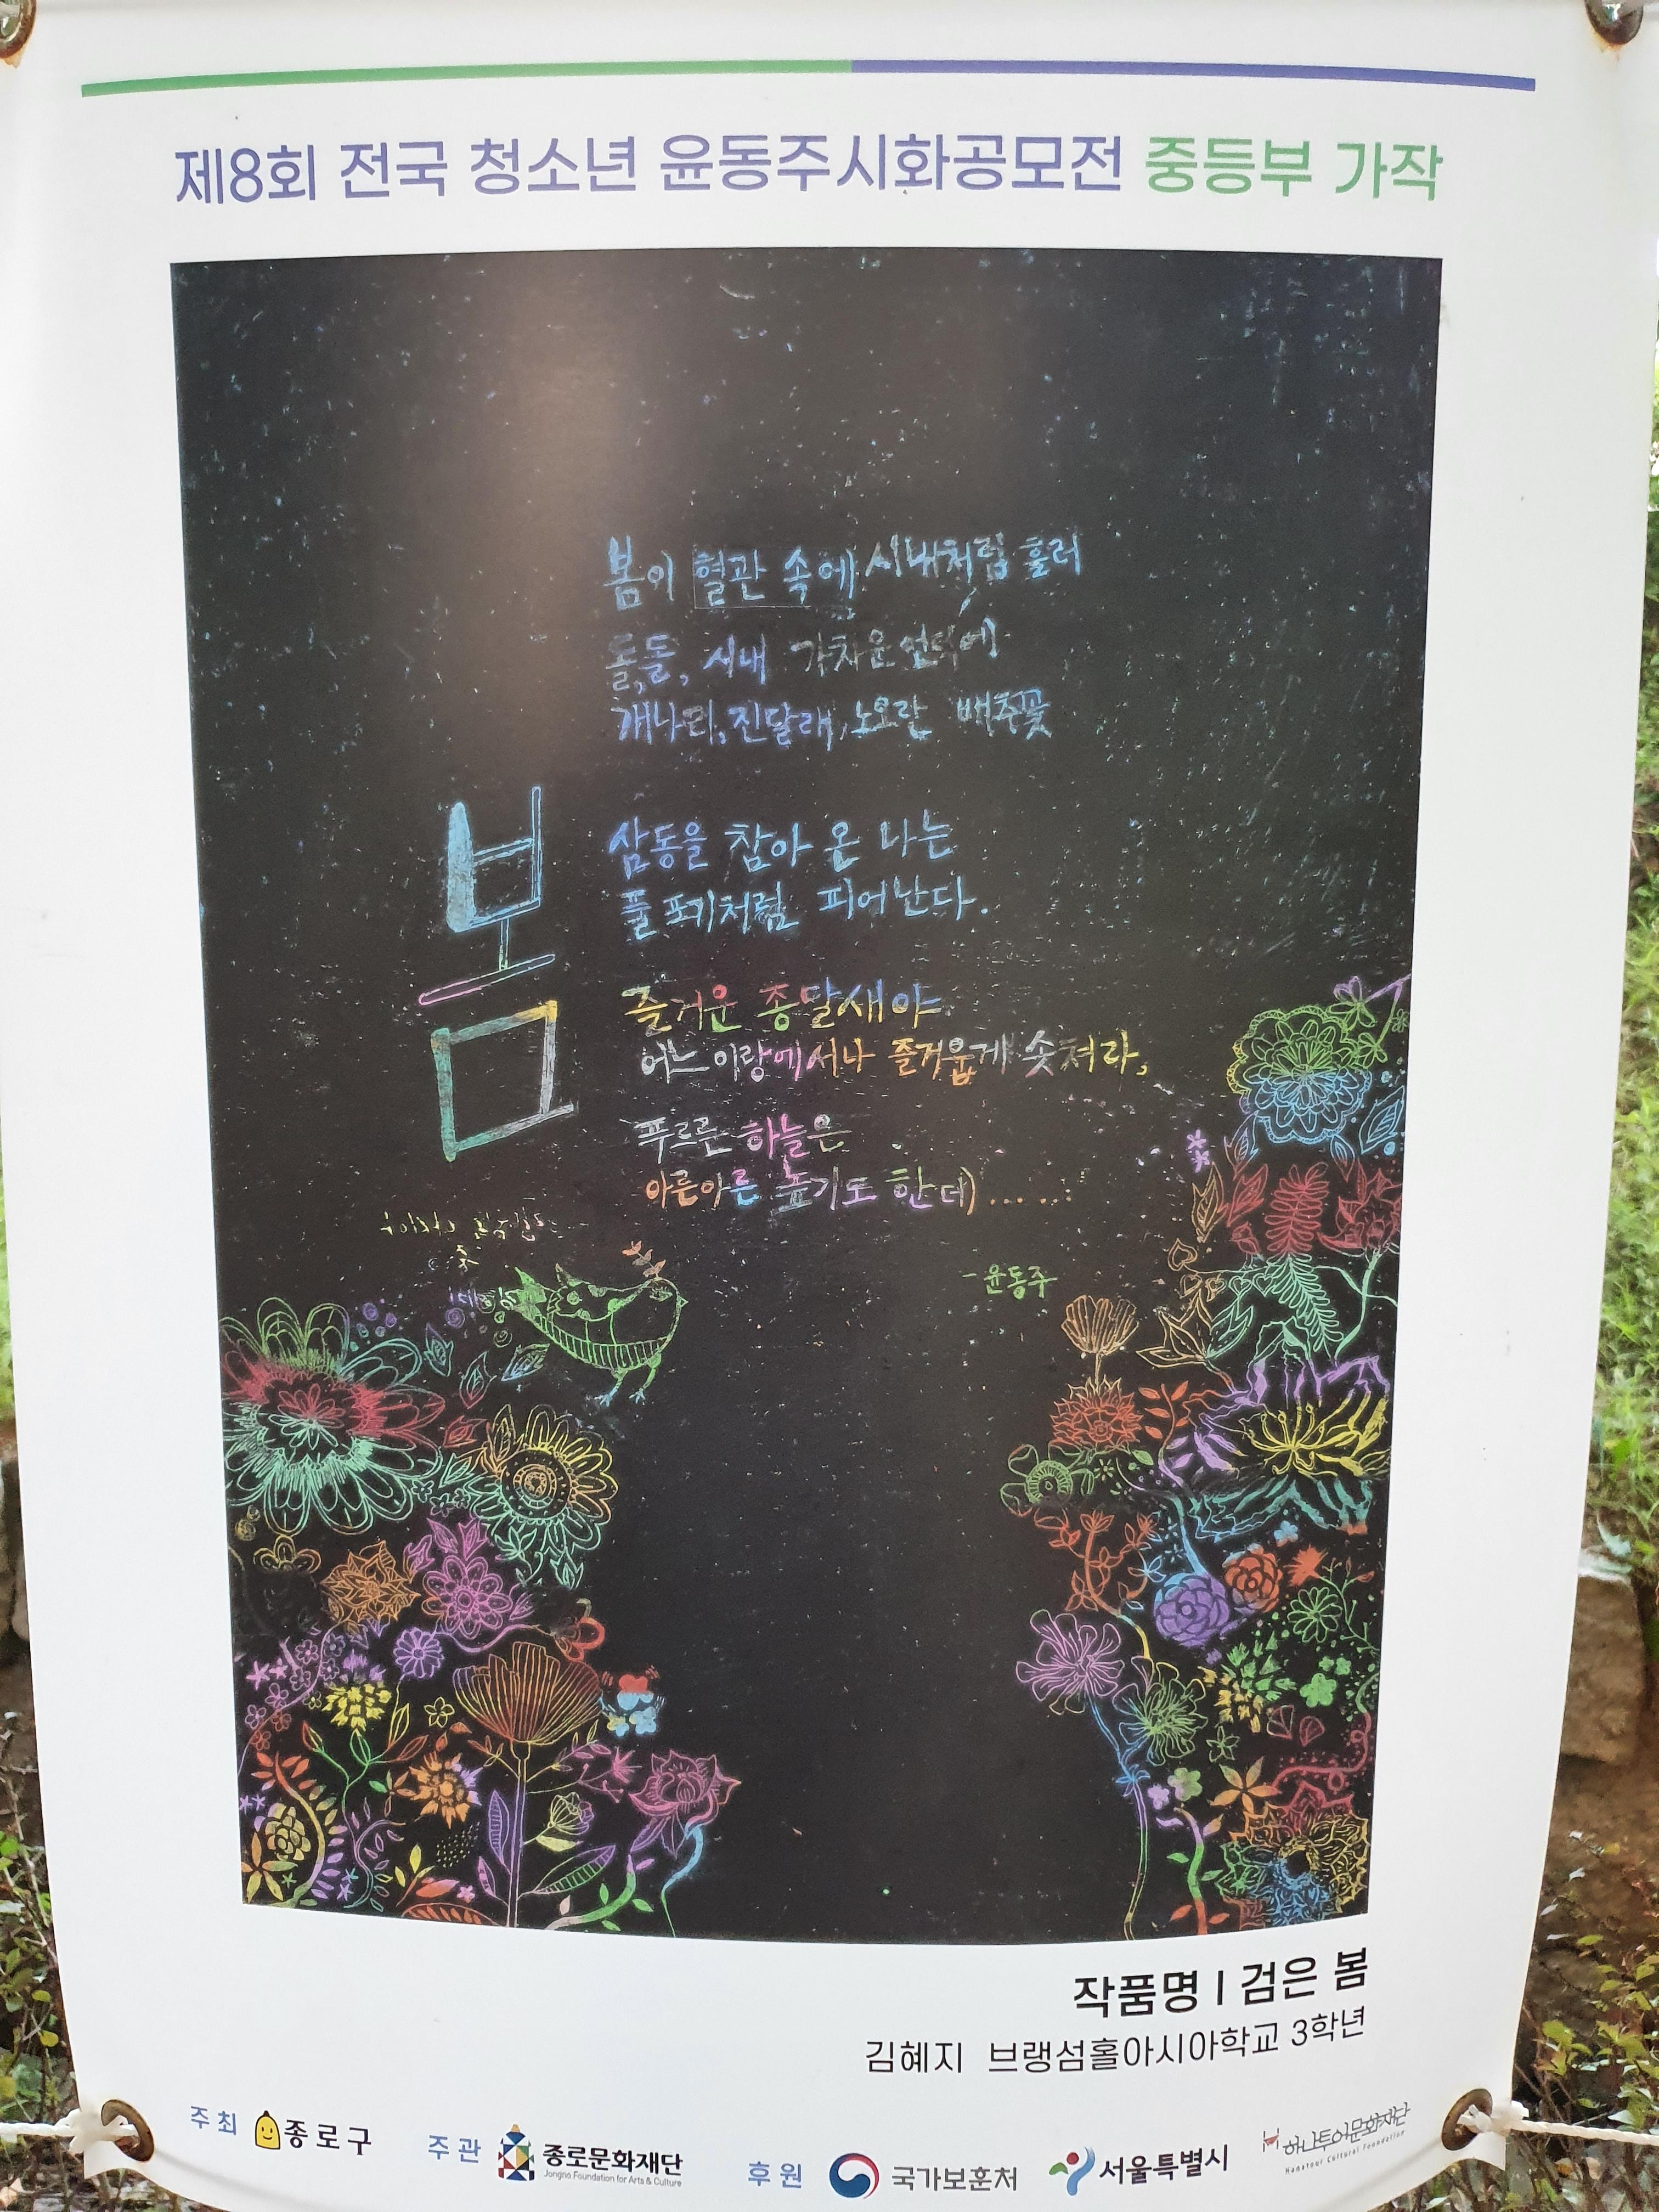 제8회 전국 청소년 윤동주시화공모전 중등부 가작
봄이 혈관 속에 시내처럼 흘러
돌,돌, 시내 가차운 언덕에
개나리,진달래,노오란 배추꽃
삼동을 참아 온 나는
풀포기처럼 피어난다.
봄
즐거운 종달새야
어느 이랑에서나 즐거웁게 솟쳐라,
푸르른 하늘은
아른아른 높기도 한데......
-윤동주
작품명 | 검은 봄
김혜지 브랭섬홀아시아학교 3학년
주최 종로구 주관 종로문화재단 후원 국가보훈처 서울특별시 하나투어문화재단
Jongno Foundation for Arts & Culture Hanatour Cultural Foundation